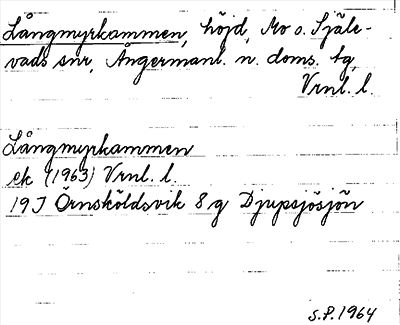 Långmyrkammen, höjd, Mo o. Själe-
vads snr, Ångermanl. n. doms. tg,
Vrnl. l.
Långmyrkammen
ek (1963) Vrnl. l.
19J Örnsköldsvik 8 g Djupsjösjön
S.P. 1964